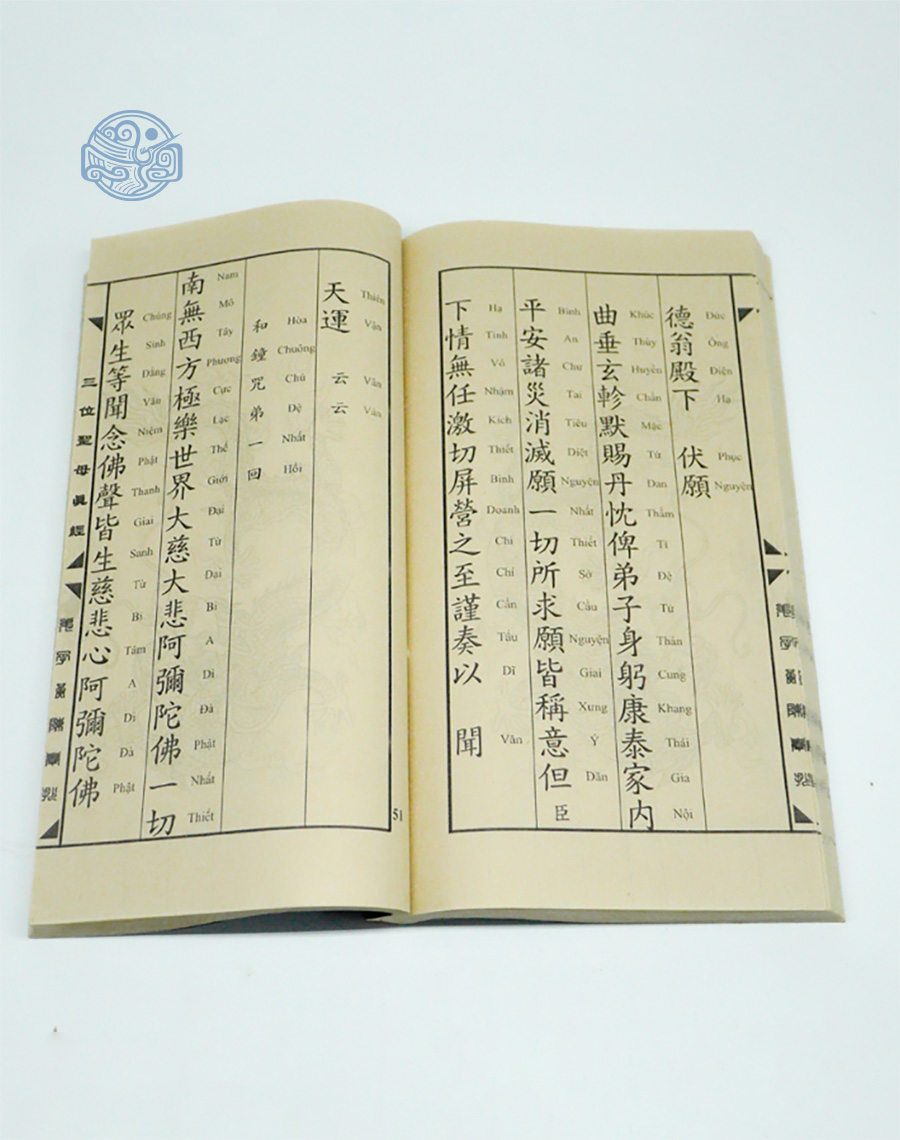 德翁殿下 伏願
Đức Ông Điện Hạ Phục Nguyện
曲垂玄軫默賜丹忱俾弟子身躬康泰家内
Khúc Thùy Huyền Chẩn Mặc Tứ Đan Thầm Tỉ Đệ Tử Thân Cung Khang Thái Gia Nội
平安諸災消滅願一切所求願皆稱意但臣
Bình An Chư Tai Tiêu Diệt Nguyện Nhất Thiết Sở Cầu Nguyện Giai Xưng Ý Dãn
下情無任激切屏營之至謹奏以 聞
Hạ Tình Vô Nhậm Kích Thiết Bình Doanh Chi Chí Cẩn Tấu Dĩ Văn
51
天運 云云
Thiên Vận Vân Vân
和鐘咒弟一回
Hòa Chuông Chú Đệ Nhất Hồi
南無西方極樂世界大慈大悲阿彌陀佛一切
Nam Mô Tây Phương Cực Lạc Thế Giới Đại Từ Đại Bi A Di Đà Phật Nhất Thiết
眾生等聞念佛聲皆生慈悲心阿彌陀佛
Chúng Sinh Đẳng Văn Niệm Phật Thanh Giai Sanh Từ Bi Tâm A Di Đà Phật
三位聖母眞經